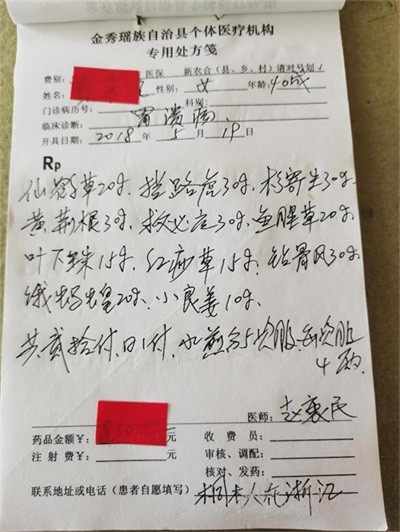 金秀瑶族自治县个体医疗机构
专用处方笺
费别： 医保 新农合（县、乡、村）请对号划√
姓名： 性别：女 年龄：40岁
门诊病历号： 科别：
临床诊断：胃溃疡
开具日期：2018年5月19日
Rp
仙鹤草20g、挡路虎30g、杉寄生30g
黄荆根30g、救必应30g、鱼腥草20g
叶下珠15g、红 草15g、钻骨风30g
20g、小良姜10g
共贰拾付、日1付、水煎分5次服、每次服
4两
医师：赵 民
药品金额￥： 元 收费员：
注射费￥： 元 审核、调配：
核对、发药：
联系地址或电话（患者自愿填写） 人在浙江